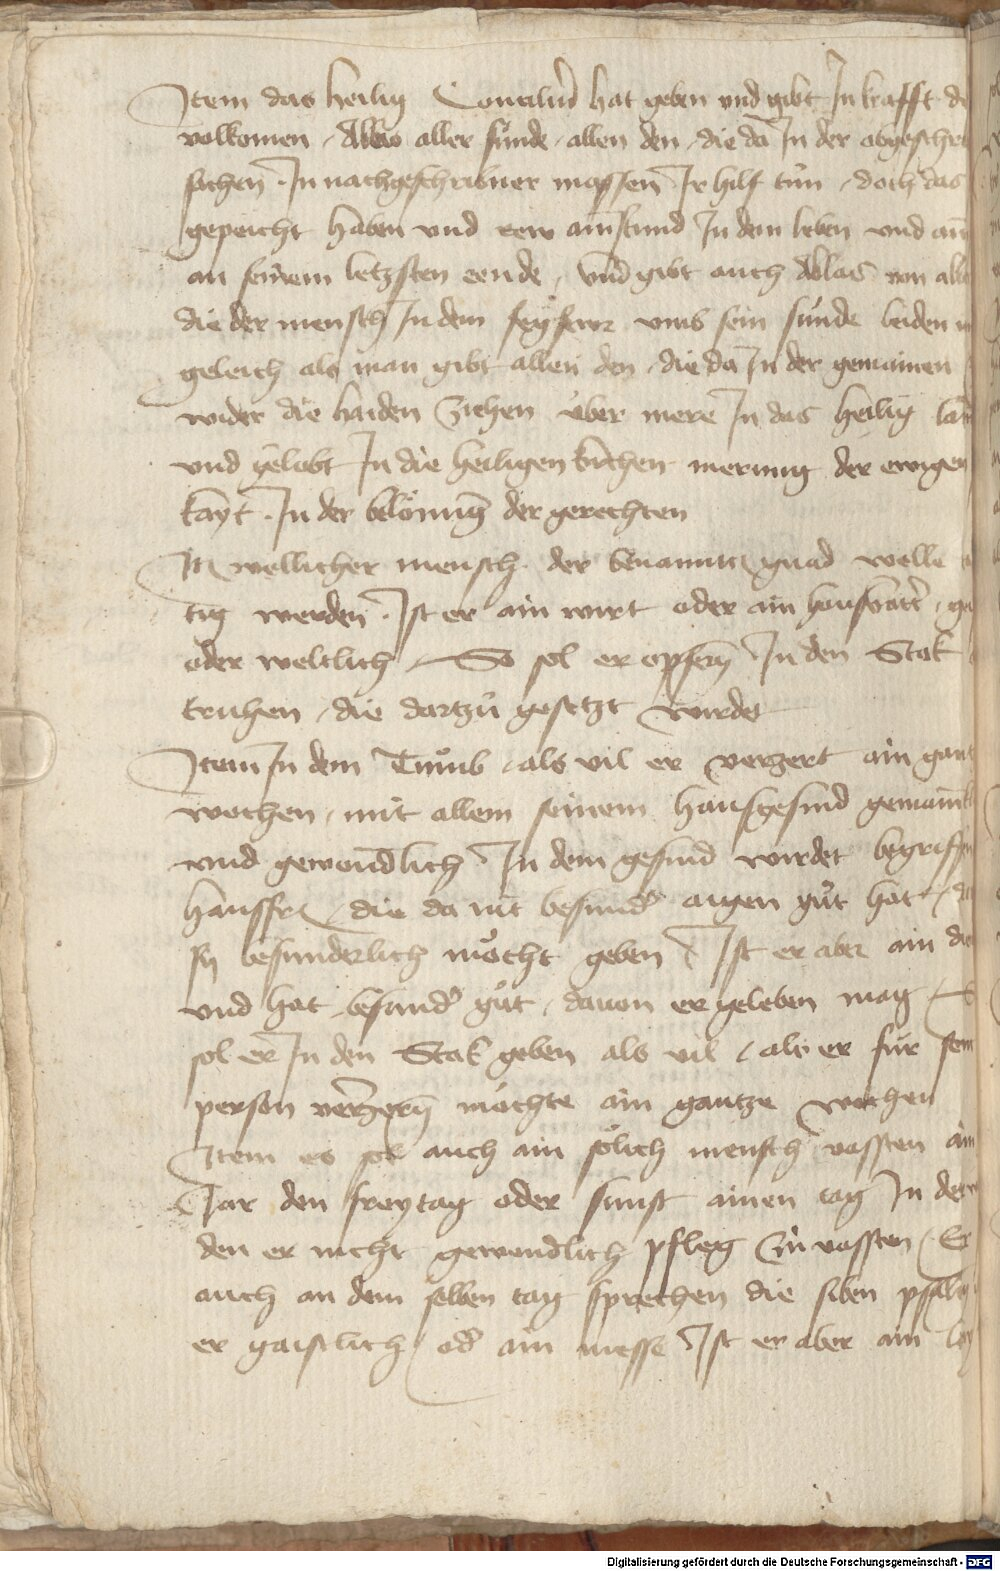 Item das heilig Conciliu͂ hat geben und gibt In krafft
volkomen Ablas aller sunde, allen den, die da In der obgeschri
sachen. In nachgeschribner massen Ir hilf tun, doch das
gepeicht haben und rew ainstund In dem leben und
an seinem letzsten eende, Und gibt auch Ablas von
die der mensch In dem fegfewr umb sein sunde leiden
geleich als man gibt allen den, die da In der gemainen
wider die haiden ziehen uber mere In das heilig
und gelobt In die heiligen kirchen merung der ewigen
kayt. In der belonung der gerechten
It͂ wellicher mensch der benannten gnad welle
tig werden. Ist er ain wirt oder ain hausvatt͛,
oder weltlich, So sol er opfern In den Stok
truhen, die dartzu gesetzt wirdet
Item In dem Tumb, als vil er verzert ain
wochen, mit allem seinem hausgesind
und gewondlich In dem gesind wirdet begriffen
haussfr, die da nit besund͛ aigen gut hat,
sy besunderlich mocht geben, Ist er aber ain
und hat besund͛ gut, davon er geleben mag
sol er In den Stok geben als vil, als er fur sein
person verzern mochte ain gantze wochen
Item es sol auch ain solich mensch vassten
Jar den freytag oder sunst ainen tag In
den er nicht gewondlich pfleg zu vassten, Er
auch an dem selben tag sprechen die siben psalm
er gaistlich, od͛ ain messe Ist er aber ain
Digitalisierung gefördert durch die Deutsche Forschungsgemeinschaft - DFG